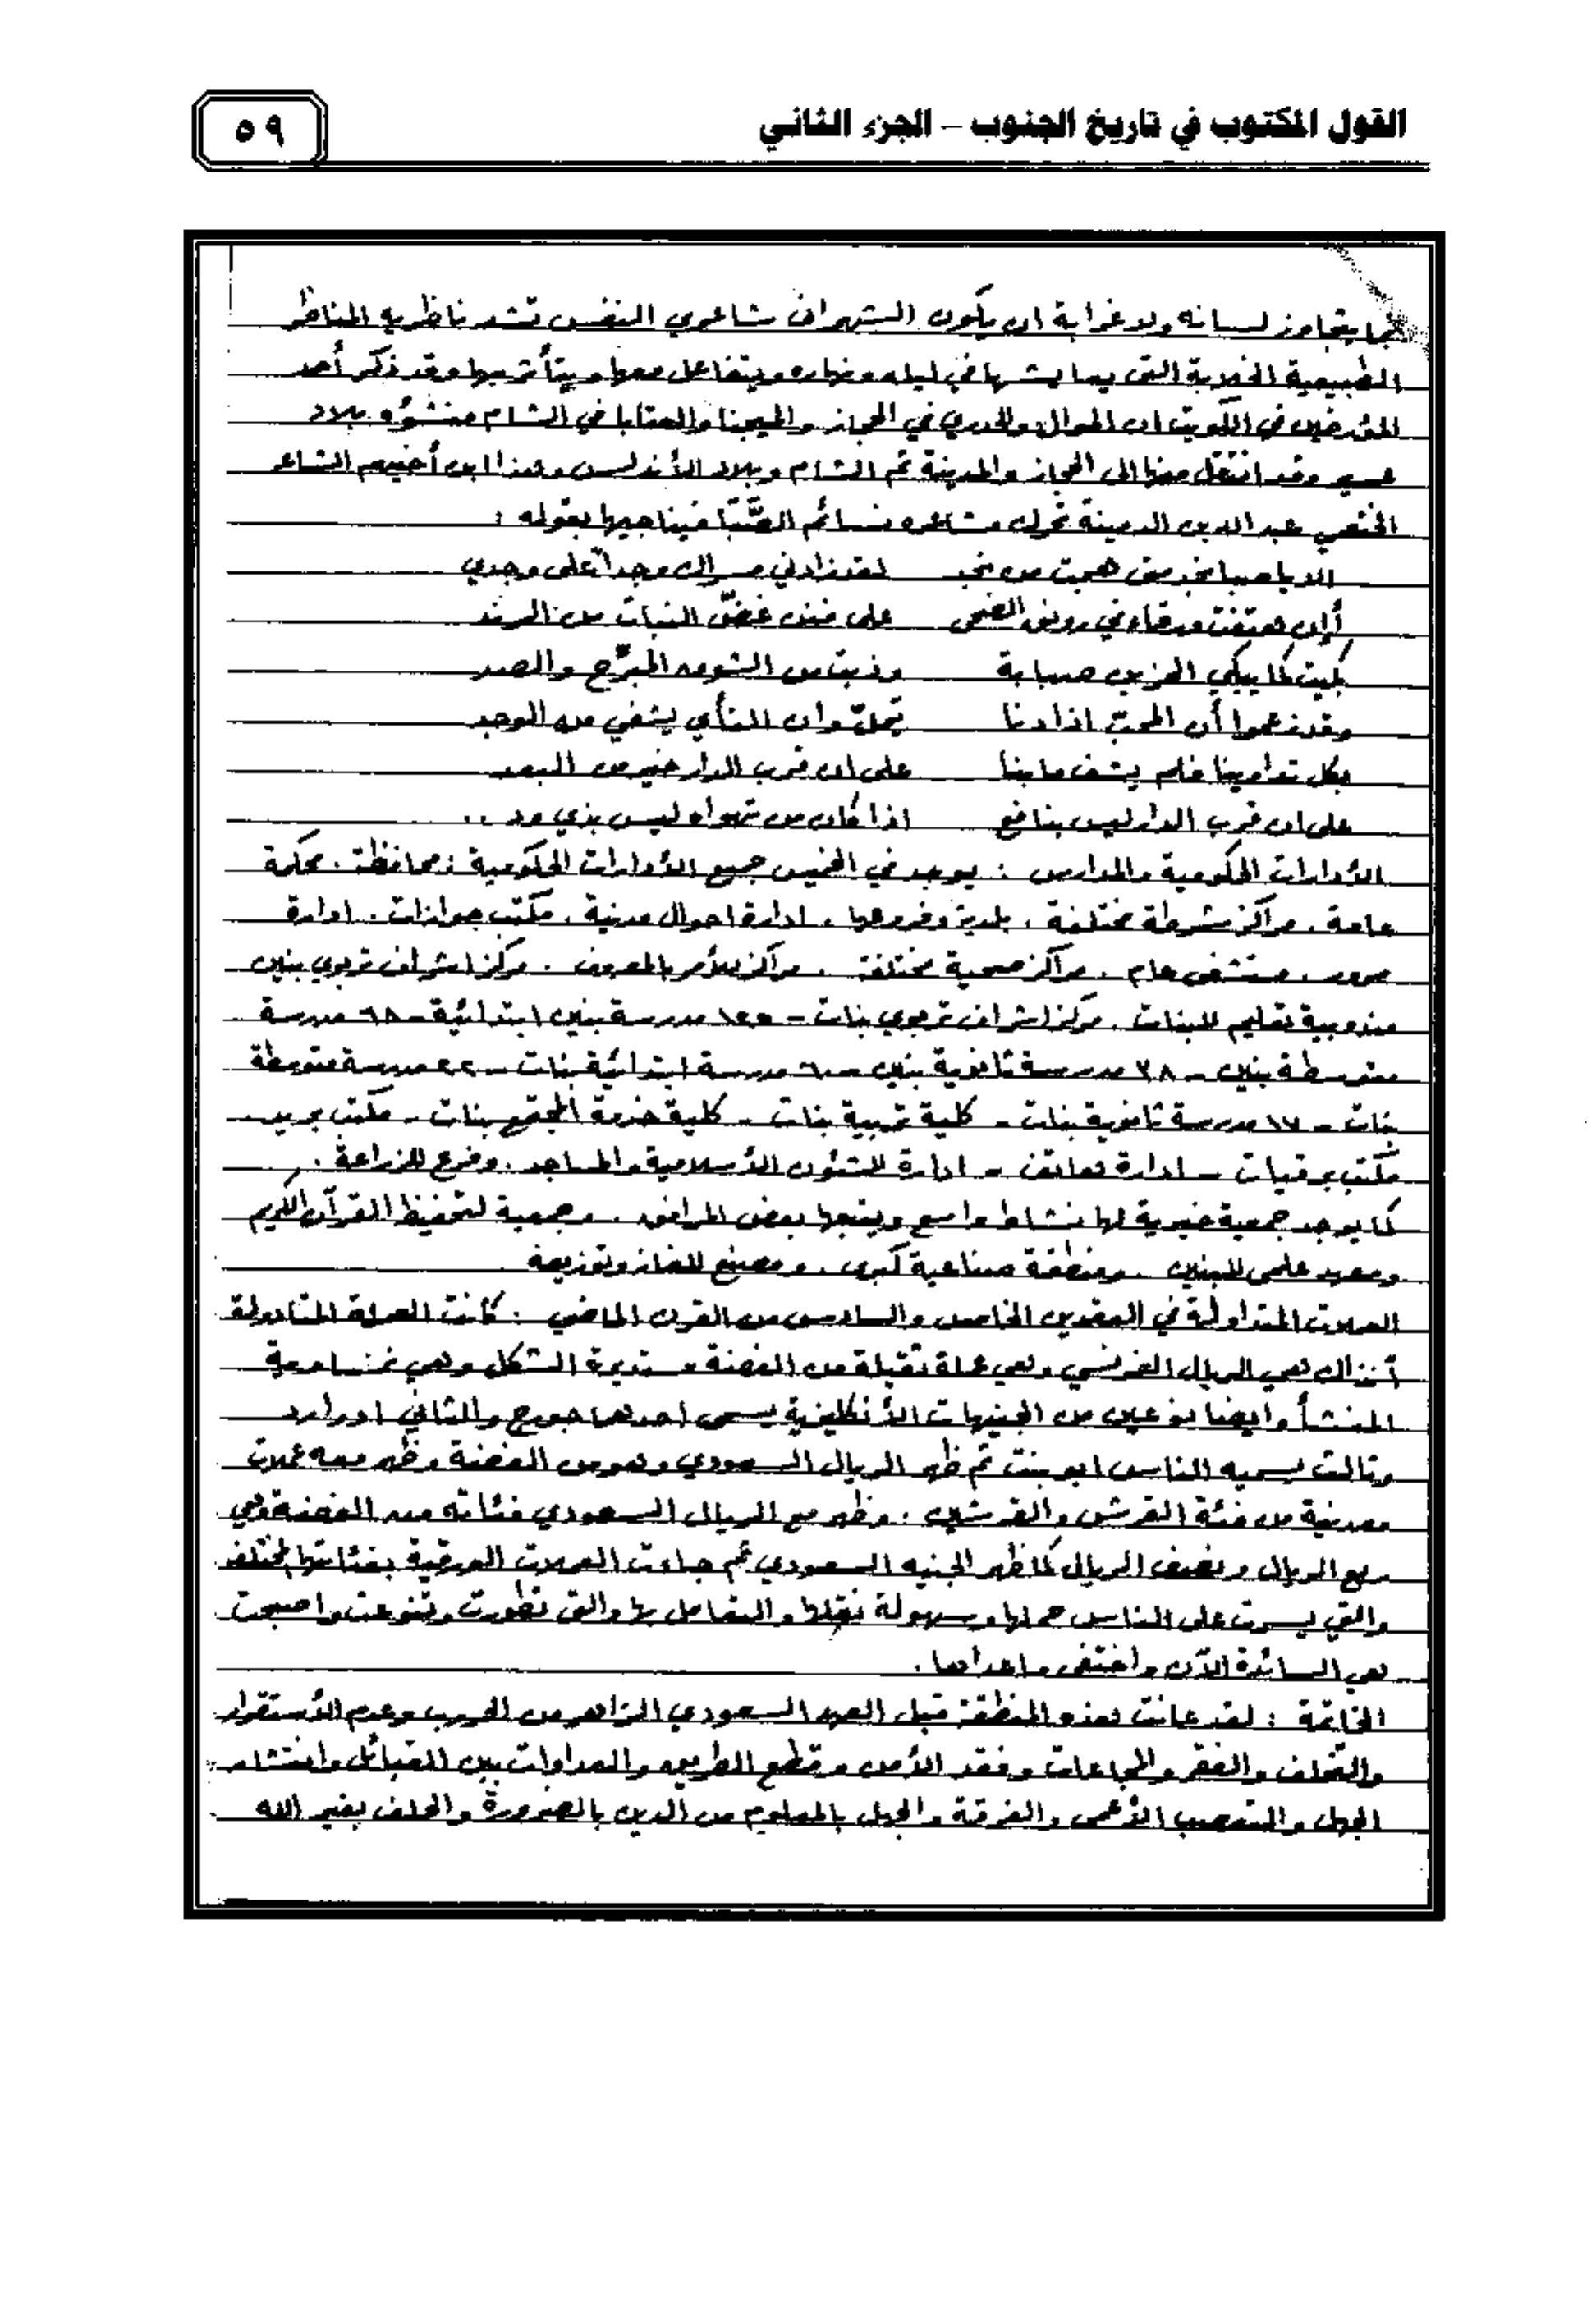 القول المكتوب في تاريخ الجنوب – الجزء الثاني
٥٩
بما يتجاوز لسانه ولا غرابة ان يكون الشهراني شاعري النفس تشد ناظريه المناظر
الطبيعية الخلابة التي يعايشها في ليله ونهاره ويتفاعل معها ويتأثر بها وقد ذكر أحد
المؤرخين في الكويت ان الموال والدوري في الحجاز والميجنا والعتابا في الشام منشؤه بلاد
عسير وقد انتقل منها الى الحجاز والمدينة ثم الشام وبلاد الأندلس وهذا ابن أخيهم الشاعر
الخثعمي عبد الله بن الدمينة تحرك مشاعره نسائم الصَّبَا فيناجيها بقوله :
الا يا صبا نجد متى هجت من نجد لقد زادني مسراك وجداً على وجدي
أإن هتفت ورقاء في رونق الضحى على فنن غضّ النبات من الرند
بكيت كما يبكي الحزين صبابة وذبت من الشوق المبرّح والصد
وقد زعموا أن المحب اذا دنا يملّ وان النأي يشفي من الوجد
بكل تداوينا فلم يشف ما بنا على ان قرب الدار خير من البعد
على ان قرب الدار ليس بنافع اذا كان من تهواه ليس بذي ود ..
الأدارات الحكومية والمدارس : يوجد في الخميس جميع الأدارات الحكومية : محافظة . محكمة
عامة . مراكز شرطة مختلفة . بلدية وفروعها . ادارة احوال مدنية . مكتب جوازات . ادارة
مرور . مستشفى عام . مراكز صحية مختلفة . مراكز للأمر بالمعروف . مركز اشراف تربوي بنين
مندوبية تعليم للبنات . مركز اشراف تربوي بنات – مدرسة بنين ابتدائية – ٦٨ مدرسة
متوسطة بنين – ٣٨ مدرسة ثانوية بنين – ٦٠ مدرسة ابتدائية بنات – مدرسة متوسطة
بنات – ١٧ مدرسة ثانوية بنات – كلية تربية بنات – كلية خدمة المجتمع بنات – مكتب بريد –
مكتب برقيات – ادارة هاتف – ادارة للشئون الأسلامية والمساجد . وفرع للزراعة .
كما يوجد جمعية خيرية لها نشاط واسع ويتبعها بعض المرافق . وجمعية لتحفيظ القرآن الكريم
ومعهد علمي للبنين . ومنطقة صناعية كبرى . ومصنع للغاز وتوزيعه
العملات المتداولة في العقدين الخامس والسادس من القرن الماضي : كانت العملة المتداولة
آنذاك هي الريال الفرنسي وهي عملة ثقيلة من الفضة مستديرة الشكل وهي نمساوية
المنشأ وايضا نوعين من الجنيهات الأنكليزية يسمى احدهما جورج والثاني ادوارد
وثالث يسميه الناس ابو بنت ثم ظهر الريال السعودي وهو من الفضة وظهر معه عملات
معدنية من فئة القرش والقرشين . وظهر مع الريال السعودي فئاته من الفضة وهي
ربع الريال ونصف الريال كما ظهر الجنيه السعودي ثم جاءت العملات الورقية بفئاتها المختلفة
والتي يسرت على الناس حملها وسهولة نقلها والتعامل بها والتي تطورت وتنوعت واصبحت
هي السائدة الآن واختفى ما عداها .
الخاتمة : لقد عانت هذه المنطقة قبل العهد السعودي الزاهر من الحروب وعدم الأستقرار
والتخلف والفقر والمجاعات وفقد الأمن وقطع الطريق والعداوات بين القبائل وانتشار
الجهل والتعصب الأعمى والفرقة والجهل بالمعلوم من الدين بالضرورة والحلف بغير الله